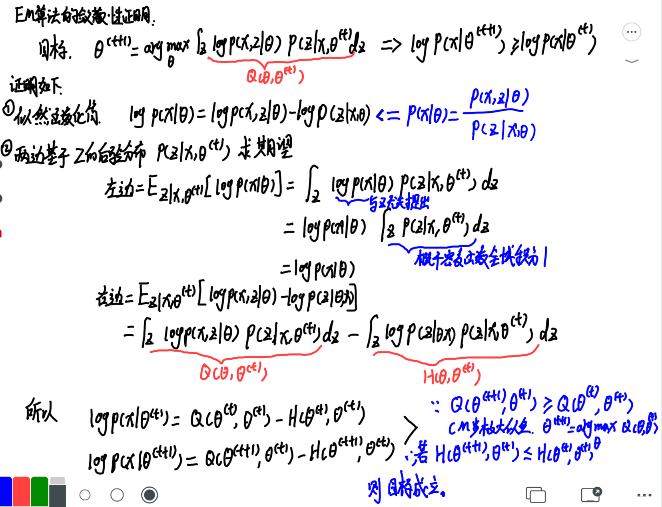 EM算法的收敛性证明.
目标. θ^(t+1) = argmax_θ ∫_z log p(x,z|θ) P(z|x,θ^(t)) dz => log p(x|θ^(t+1)) ≥ log p(x|θ^(t))
Q(θ,θ^(t))
证明如下:
① 似然函数化简 log p(x|θ) = log p(x,z|θ) - log p(z|x,θ) <= p(x|θ) = P(x,z|θ) / P(z|x,θ)
② 两边基于Z的后验分布 P(z|x,θ^(t)) 求期望
左边 = E_z|x,θ^(t) [log p(x|θ)] = ∫_z log p(x|θ) P(z|x,θ^(t)) dz
与z无关提出
= log p(x|θ) ∫_z P(z|x,θ^(t)) dz
概率密度函数全域积分1
= log p(x|θ)
右边 = E_z|x,θ^(t) [log p(x,z|θ) - log p(z|θ,x)]
= ∫_z log p(x,z|θ) p(z|x,θ^(t)) dz - ∫_z log p(z|θ,x) p(z|x,θ^(t)) dz
Q(θ,θ^(t)) H(θ,θ^(t))
所以 log p(x|θ^(t)) = Q(θ^(t),θ^(t)) - H(θ^(t),θ^(t))
log p(x|θ^(t+1)) = Q(θ^(t+1),θ^(t)) - H(θ^(t+1),θ^(t))
∵ Q(θ^(t+1),θ^(t)) ≥ Q(θ^(t),θ^(t))
θ^(t+1) = argmax_θ Q(θ,θ^(t))
∴ 若 H(θ^(t+1),θ^(t)) ≤ H(θ^(t),θ^(t))
则目标成立。